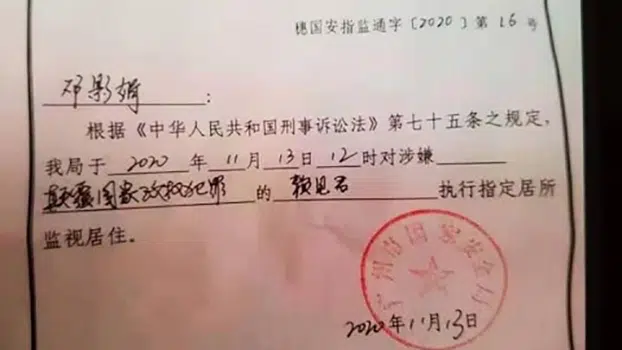 穗国安指监通字〔2020〕第16号
邓影：
根据《中华人民共和国刑事诉讼法》第七十五条之规定，
我局于 2020 年 11 月 13 日 12 时对涉嫌
颠覆国家政权犯罪 的 赖见君 执行指定居所
监视居住。
广州市国家安全局
2020年11月13日